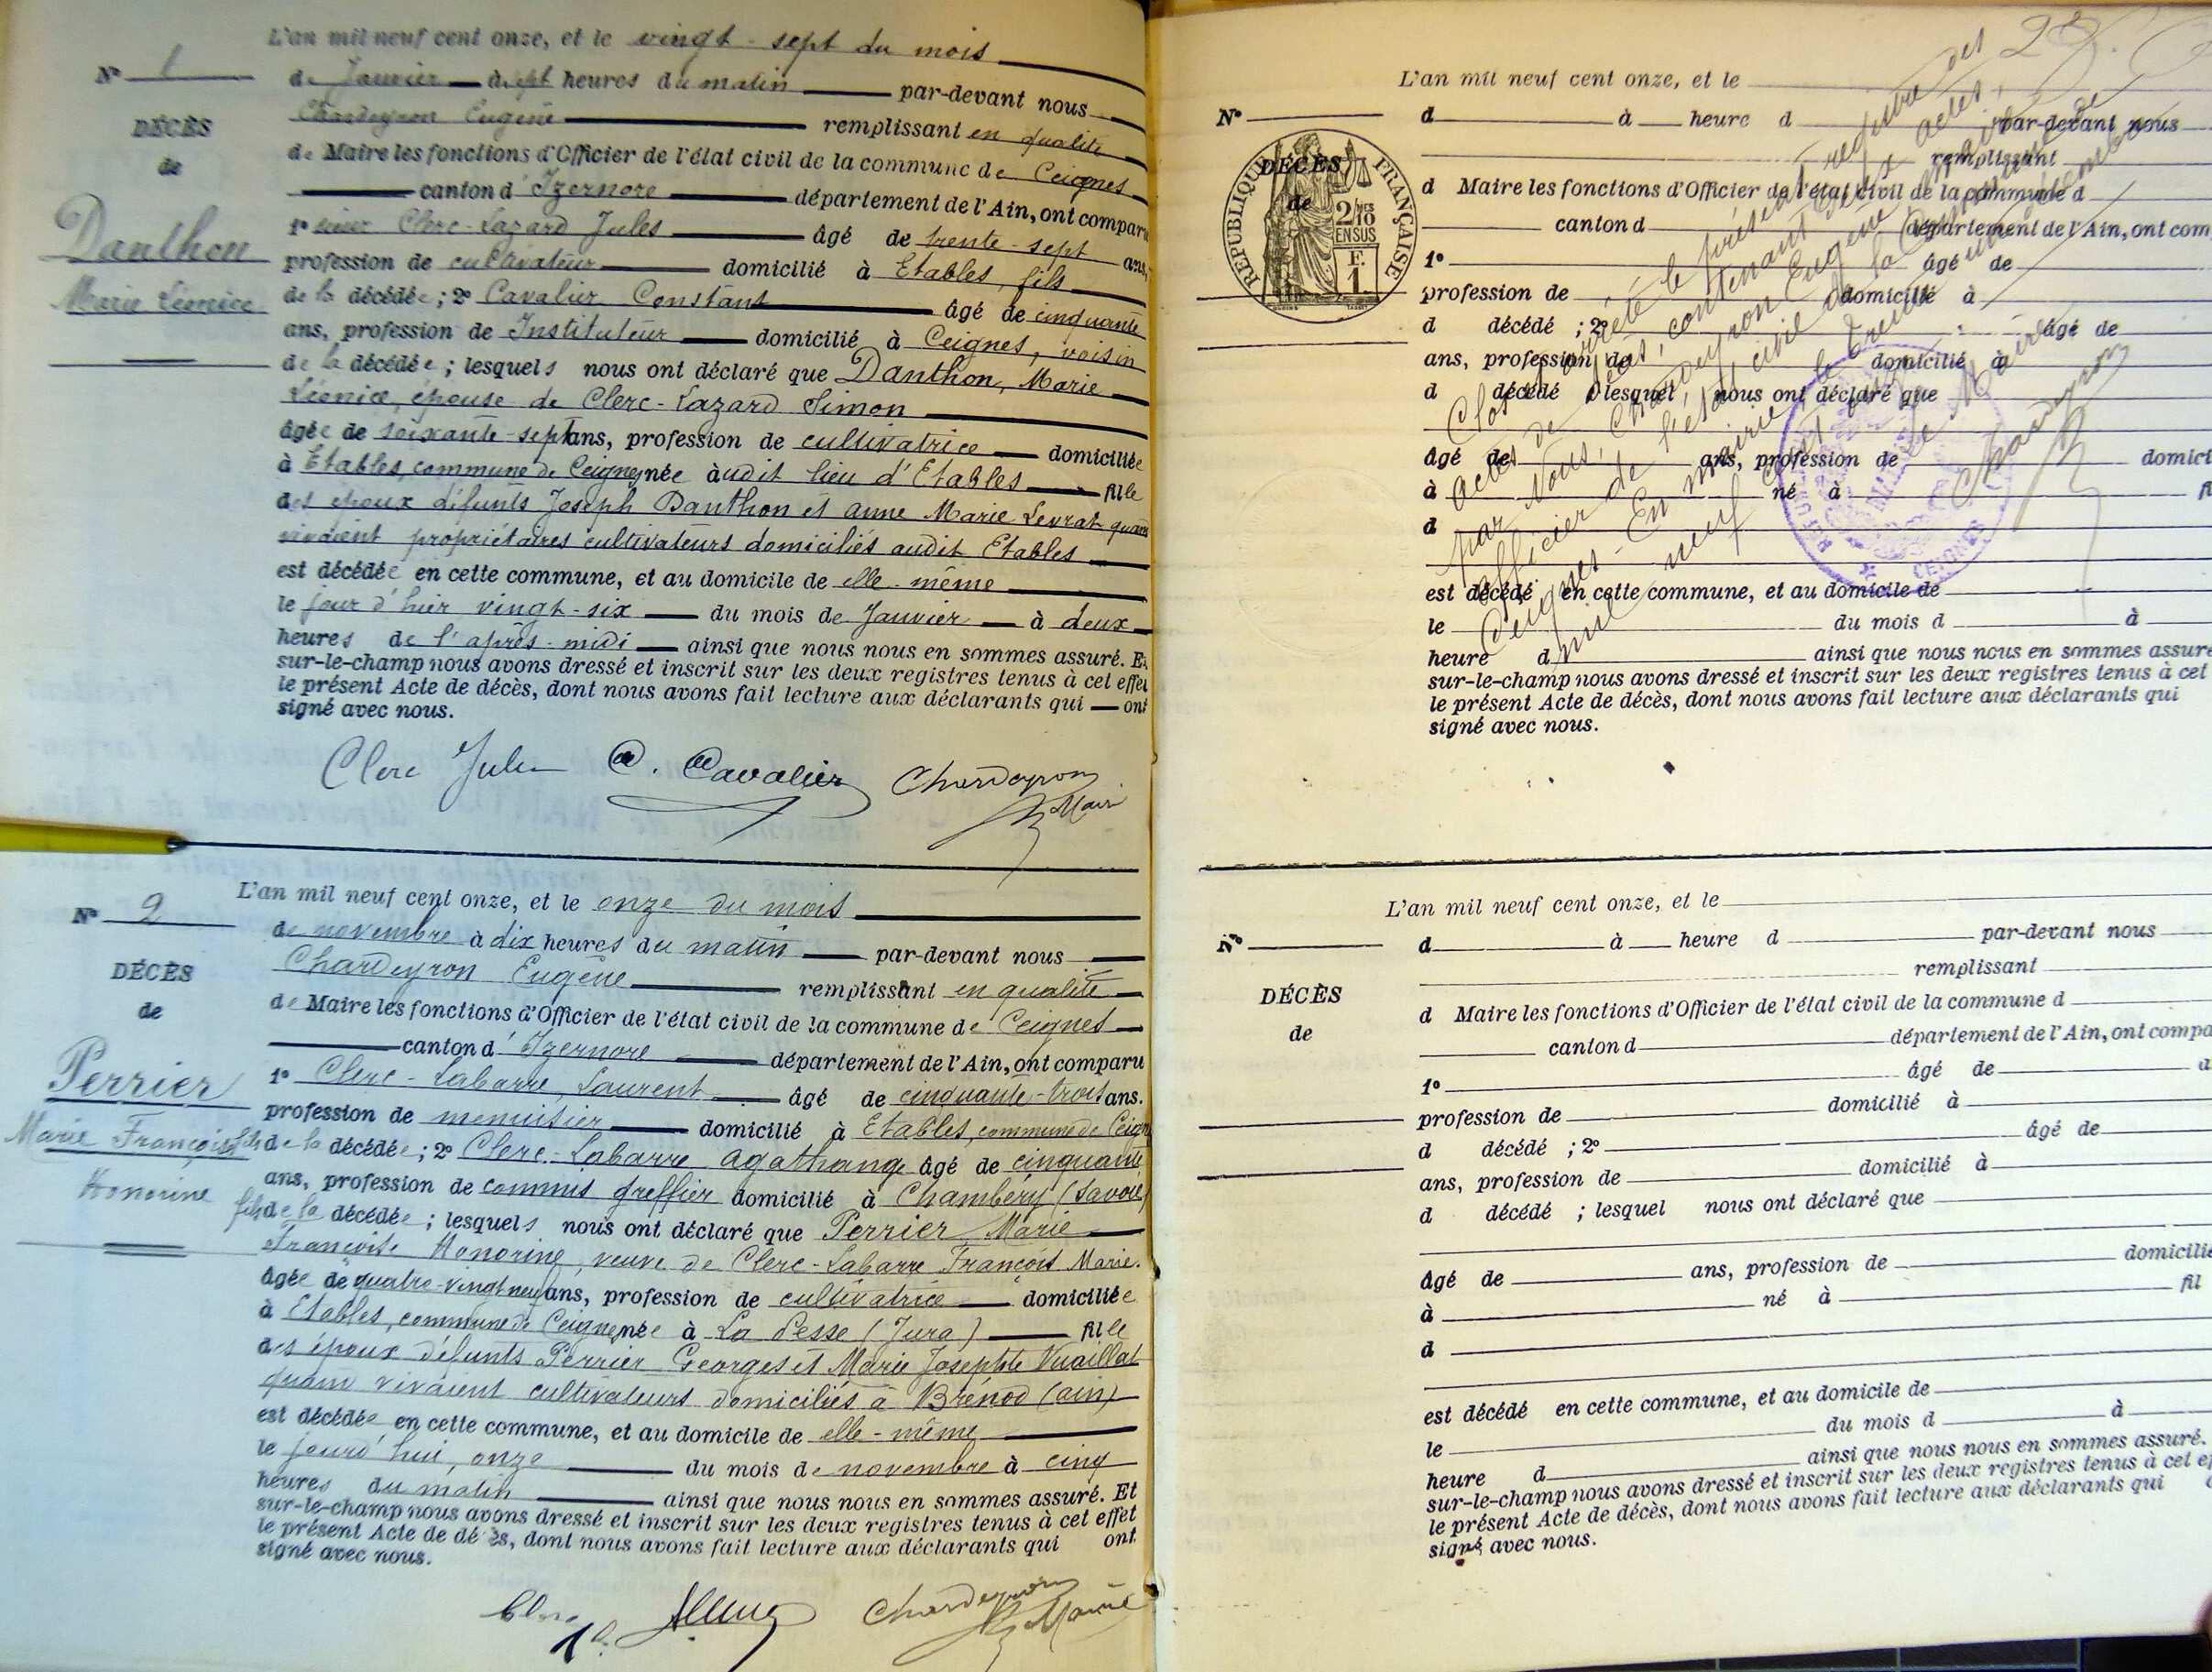 L'an mil neuf cent onze, et le vingt-sept du mois
N° 1
de Janvier à sept heures du matin par-devant nous
Chardeyron Eugène remplissant en qualité
DÉCÈS
de
de Maire les fonctions d'Officier de l'état civil de la commune de Ceignes
canton d'Izernore département de l'Ain, ont comparu
Danthon
Marie Léonice
1° Clerc-Lazard Jules âgé de trente-sept ans,
profession de cultivateur domicilié à Etables, fils
de la décédée ; 2° Cavalier Constant âgé de cinquante
ans, profession de Instituteur domicilié à Ceignes, voisin
de la décédée ; lesquels nous ont déclaré que Danthon, Marie
Léonice, épouse de Clerc-Lazard Simon
âgée de soixante-sept ans, profession de cultivatrice domiciliée
à Etables, commune de Ceignes née à udit lieu d'Etables fille
des époux défunts Joseph Danthon et Anne Marie Levrat quand
vivaient propriétaires cultivateurs domiciliés audit Etables
est décédée en cette commune, et au domicile de elle-même
le jour d'hier vingt-six du mois de Janvier à deux
heures de l'après-midi ainsi que nous nous en sommes assuré. Et
sur-le-champ nous avons dressé et inscrit sur les deux registres tenus à cet effet
le présent Acte de décès, dont nous avons fait lecture aux déclarants qui ont
signé avec nous.
Clerc Jules C. Cavalier Chardeyron
Maire
L'an mil neuf cent onze, et le onze du mois
N° 2
de novembre à dix heures du matin par-devant nous
Chardeyron Eugène remplissant en qualité
DÉCÈS
de
de Maire les fonctions d'Officier de l'état civil de la commune de Ceignes
canton d'Izernore département de l'Ain, ont comparu
Perrier
Marie Françoise
Honorine
1° Clerc-Labarre, Laurent âgé de cinquante-trois ans.
profession de menuisier domicilié à Etables, commune de Ceign
fils de la décédée ; 2° Clerc-Labarre Agathange âgé de cinquante
ans, profession de commis greffier domicilié à Chambéry (Savoie)
fils de la décédée ; lesquels nous ont déclaré que Perrier, Marie
Françoise Honorine, veuve de Clerc-Labarre François Marie.
âgée de quatre-vingt neuf ans, profession de cultivatrice domiciliée
à Etables, commune de Ceignes née à La Pesse (Jura) fille
des époux défunts Perrier Georges et Marie Josephte Vuaillat
quand vivaient cultivateurs domiciliés à Brénod (ain)
est décédée en cette commune, et au domicile de elle-même
le jourd'hui, onze du mois de novembre à cinq
heures du matin ainsi que nous nous en sommes assuré. Et
sur-le-champ nous avons dressé et inscrit sur les deux registres tenus à cet effet
le présent Acte de décès, dont nous avons fait lecture aux déclarants qui ont
signé avec nous.
Clerc Chardeyron
Maire
L'an mil neuf cent onze, et le
N°
d à heure d par-devant nous
remplissant
DÉCÈS
de
RÉPUBLIQUE FRANÇAISE
2/10 EN SUS
F. 1
d Maire les fonctions d'Officier de l'état civil de la commune d
canton d département de l'Ain, ont com
1° âgé de
profession de domicilié à
d décédé ; 2° âgé de
ans, profession de domicilié à
d décédé ; lesquel nous ont déclaré que
âgé de ans, profession de domici
à né à fi
d
est décédé en cette commune, et au domicile de
le du mois d à
heure d ainsi que nous nous en sommes assuré
sur-le-champ nous avons dressé et inscrit sur les deux registres tenus à cet
le présent Acte de décès, dont nous avons fait lecture aux déclarants qui
signé avec nous.
Clos et arrêté le présent registre des
actes de décès, contenant deux actes,
par Nous, Chardeyron Eugène, Maire,
officier de l'état civil de la Commune de
Ceignes - En mairie le trente un décembre
mil neuf cent onze
Le Maire
Chardeyron
CEIGNES
L'an mil neuf cent onze, et le
N°
d à heure d par-devant nous
remplissant
DÉCÈS
de
d Maire les fonctions d'Officier de l'état civil de la commune d
canton d département de l'Ain, ont compa
1° âgé de
profession de domicilié à
d décédé ; 2° âgé de
ans, profession de domicilié à
d décédé ; lesquel nous ont déclaré que
âgé de ans, profession de domicilié
à né à fil
d
est décédé en cette commune, et au domicile de
le du mois d à
heure d ainsi que nous nous en sommes assuré.
sur-le-champ nous avons dressé et inscrit sur les deux registres tenus à cet ef
le présent Acte de décès, dont nous avons fait lecture aux déclarants qui
signé avec nous.